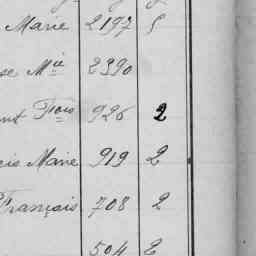 Marie 2197 5
se Mie 2390
ent Fçois 926 2
cis Marie 919 2
François 708 2
504 2